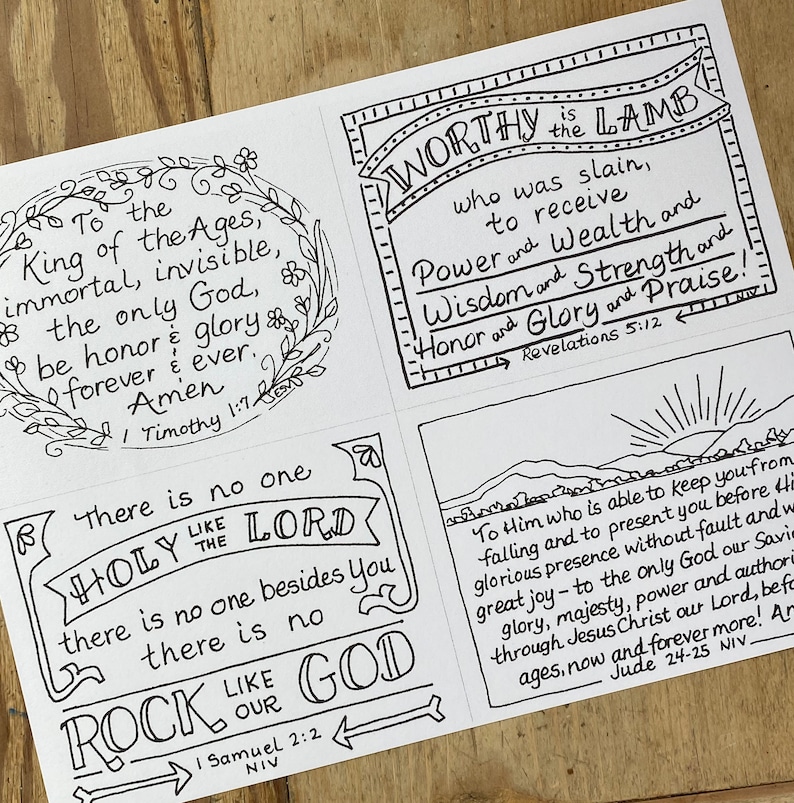 To the
King of the Ages,
immortal, invisible,
the only God,
be honor & glory
forever & ever.
Amen
1 Timothy 1:7 ESV
WORTHY is the LAMB
who was slain,
to receive
Power and Wealth and
Wisdom and Strength and
Honor and Glory and Praise!
Revelations 5:12 NIV
There is no one
HOLY LIKE THE LORD
there is no one besides you
there is no
ROCK LIKE OUR GOD
1 Samuel 2:2
NIV
To Him who is able to keep you from
falling and to present you before
glorious presence without fault and
great joy - to the only God our
glory, majesty, power and
through Jesus Christ our Lord,
ages, now and forevermore!
Jude 24-25 NIV